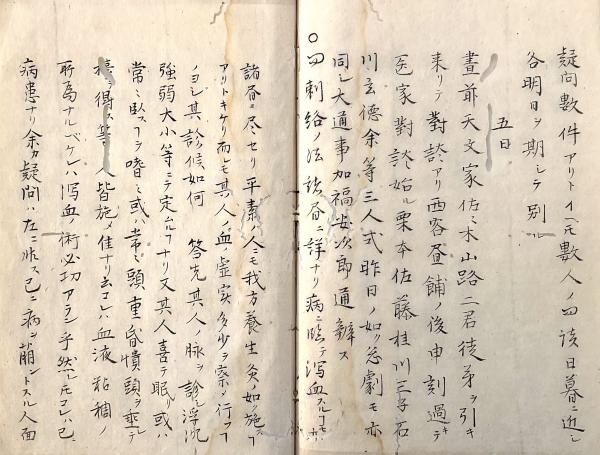 疑問數件アリトイヘ𪜈數人ノ回談日暮ニ近シ
各明日ヲ期シテ別ル
五日
晝前天文家佐々木山路二君徒弟ヲ引キ
来リテ對談アリ西客昼餔ノ後申刻過キテ
医家對談始ル栗本佐藤桂川三子石
川玄德余等三人式昨日ノ如ク怱劇モ亦
同シ大通事加福安次郎通辨ス
○問刺絡ノ法諸書ニ詳ナリ病ニ臨テ瀉血スルコヿ
諸書ニ尽セリ平素ノ人ニモ我方養生灸如ク施スヿ
アリトキケリ而シテ其人ノ血ノ虚実多少ヲ察メ行フヿ
ノヨシ其診候如何 答先其人ノ脉ヲ診シ浮沉
強弱大小等ニテ定ムルヿナリ又其人喜テ眠リ或ハ
常ニ臥スヿヲ嗜ミ或ハ常ニ頭重昏憒頭垂レテ
得ス等ノ人皆施メ佳ナリ云コレハ血液粘稠ノ
所為ナルベケレハ瀉血ノ術必功アラン乎然レ𪜈コレハ已
病患ナリ余カ疑問ハ左ニ非ス已ニ病ノ萠ントスル人面